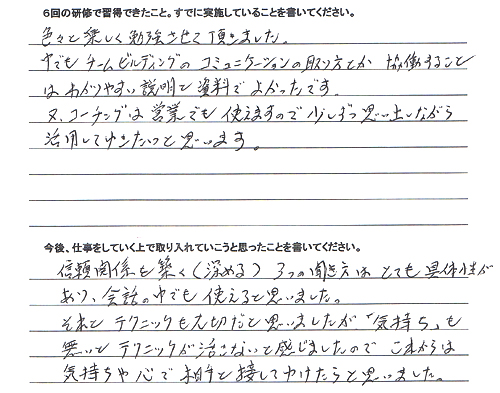 6回の研修で習得できたこと。すでに実施していることを書いてください。
色々と楽しく勉強させて頂きました。
中でもチームビルディングのコミュニケーションの取り方とか 協働すること
はわかりやすい説明と資料でよかったです。
又、コーチングは営業でも使えますので少しずつ思い出しながら
活用してゆきたいと思います。
今後、仕事をしていく上で取り入れていこうと思ったことを書いてください。
信頼関係を築く(深める) 3つの聞き方は とても具体性が
あり、会話の中でも使えると思いました。
それと テクニックも大切だと思いましたが「気持ち」も
無いと テクニックが活きないと感じましたので これからは
気持ちや心で相手と接してゆけたらと思いました。